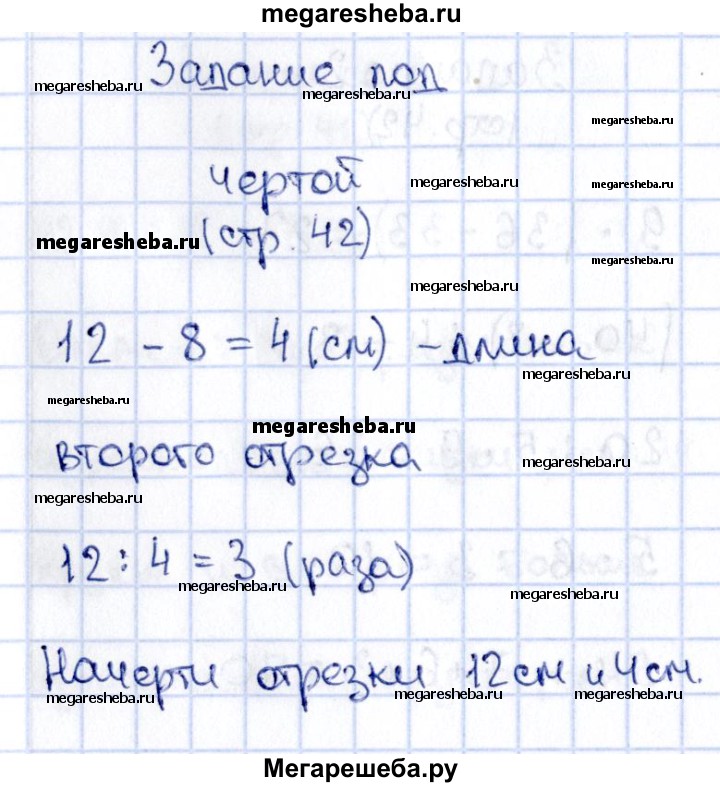 megaresheba.ru
Задание под
megaresheba.ru
megaresheba.ru
megaresheba.ru
чертой
megaresheba.ru
megaresheba.ru
megaresheba.ru
(стр. 42)
megaresheba.ru
megaresheba.ru
12 - 8 = 4 (см) - длина
megaresheba.ru
megaresheba.ru
megaresheba.ru
второго отрезка
megaresheba.ru
megaresheba.ru
12 : 4 = 3 (раза)
megaresheba.ru
megaresheba.ru
Начерти отрезки 12 см и 4 см.
megaresheba.ru
megaresheba.ru
megaresheba.ru
Мегарешеба.ру